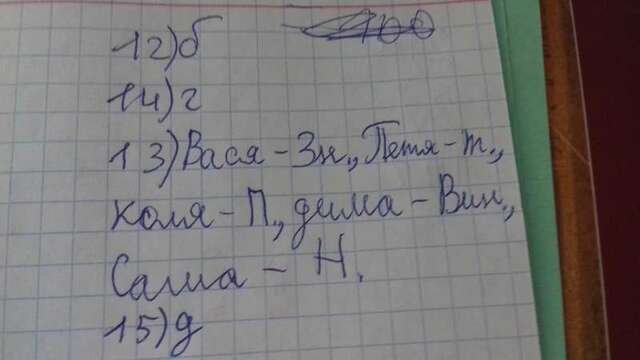 12)б
14)г
13)Вася-Зн., Петя-т.,
Коля-П., дима-Вин.,
Саша-Н.
15)д